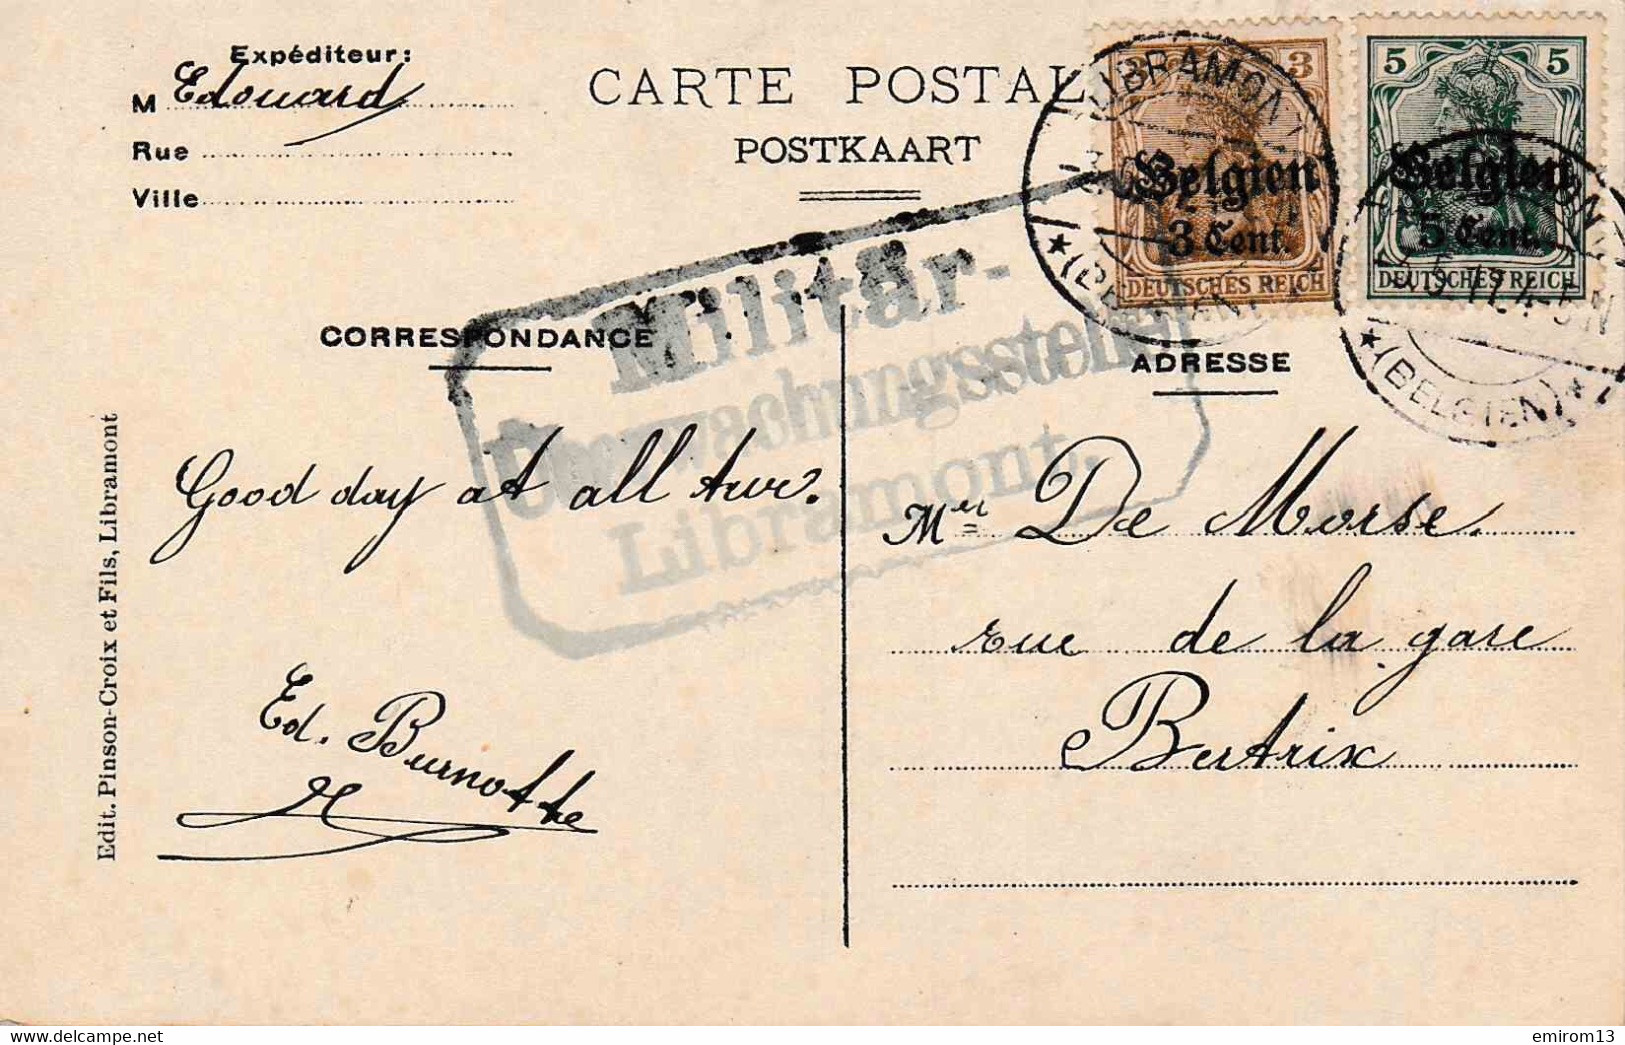 Expéditeur:
M Edouard
Rue
Ville
CARTE POSTAL
POSTKAART
3
Belgien
3 Cent.
DEUTSCHES REICH
5 5
Belgien
5 Cent.
DEUTSCHES REICH
LIBRAMONT
(BELGIEN)
(BELGIEN) * 1
Militär-
Überwachungsstelle
Libramont.
CORRESPONDANCE
ADRESSE
Good day at all
Ed. Burnotte
Mr De Morse.
rue de la gare
Bertrix
Edit. Pinson-Croix et Fils, Libramont
delcampe.net
emirom13